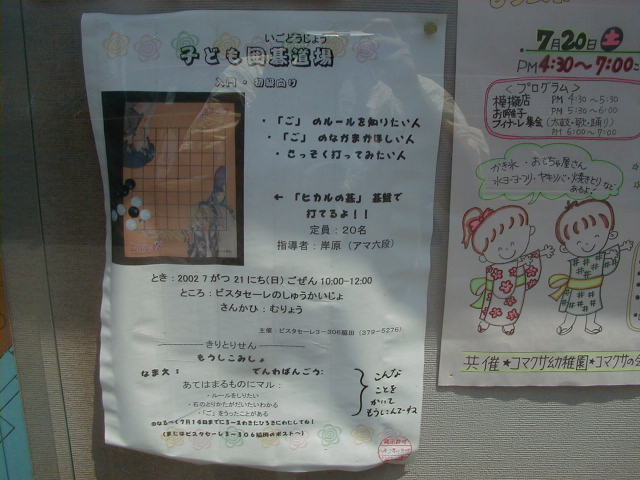 いごどうじょう
子ども囲碁道場
入門・初級向け
・「ご」のルールを知りたい人
・「ご」のなかまがほしい人
・さっそく打ってみたい人
←「ヒカルの碁」碁盤で
打てるよ!!
定員:20名
指導者:岸原(アマ六段)
とき:2002 7がつ 21にち(日)ごぜん 10:00-12:00
ところ:ビスタセーレのしゅうかいじょ
さんかひ:むりょう
主催:ビスタセーレ3-306 (379-5276)
きりとりせん
もうしこみしょ
なまえ: でんわばんごう:
あてはまるものにマル:
・ルールをしりたい
・石のとりかたがだいたいわかる
・「ご」をうったことがある
こんな
ことを
かいて
(またはビスタセーレ3-306 のポストへ)
7月20日土
PM4:30~7:00
<プログラム>
模擬店 PM 4:30~5:30
お囃子 PM 5:30~6:00
フィナーレ集会(太鼓・歌・踊り)
PM 6:00~7:00
かき氷・おもちゃ屋さん
水ヨーヨーつり・ヤキソバ・焼きとりなど
あるよ!
共催★コマクサ幼稚園★コマクサの会